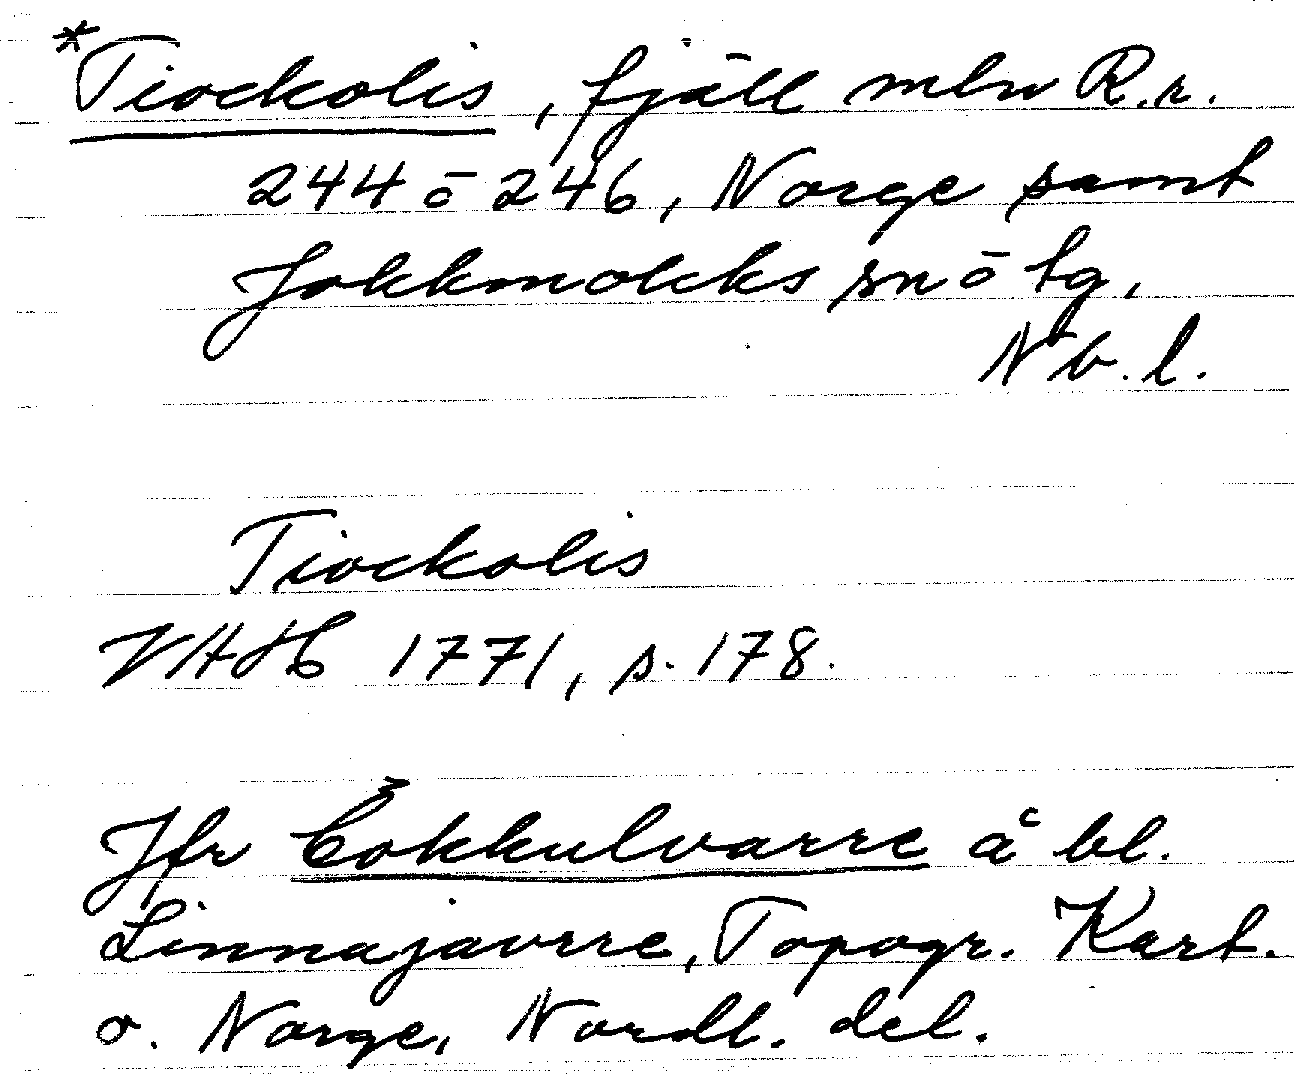 *Tiockolis, fjäll mln R.r.
244 o 246, Norge samt
Jokkmokks sn o tg,
Nb. l.
Tiockolis
VAH 1771, s. 178.
Jfr Čokkulvarre å bl.
Linnajavrre, Topogr. Kart.
o. Norge, Nordl. del.